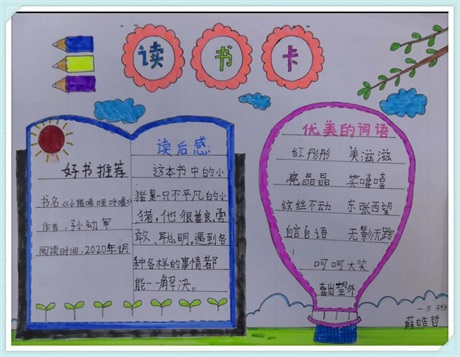 读书卡
好书推荐
书名《小猪唏哩呼噜》
作者:孙幼军
阅读时间:2020年1月
读后感:
这本书中的小
猪是一只不平凡的小
猪,他很善良、勇
敢、聪明。遇到各
种各样的事情都
能一一解决。
优美的词语
红彤彤 美滋滋
亮晶晶 笑嘻嘻
纹丝不动 东张西望
自言自语 无影无踪
呵呵大笑
喜出望外